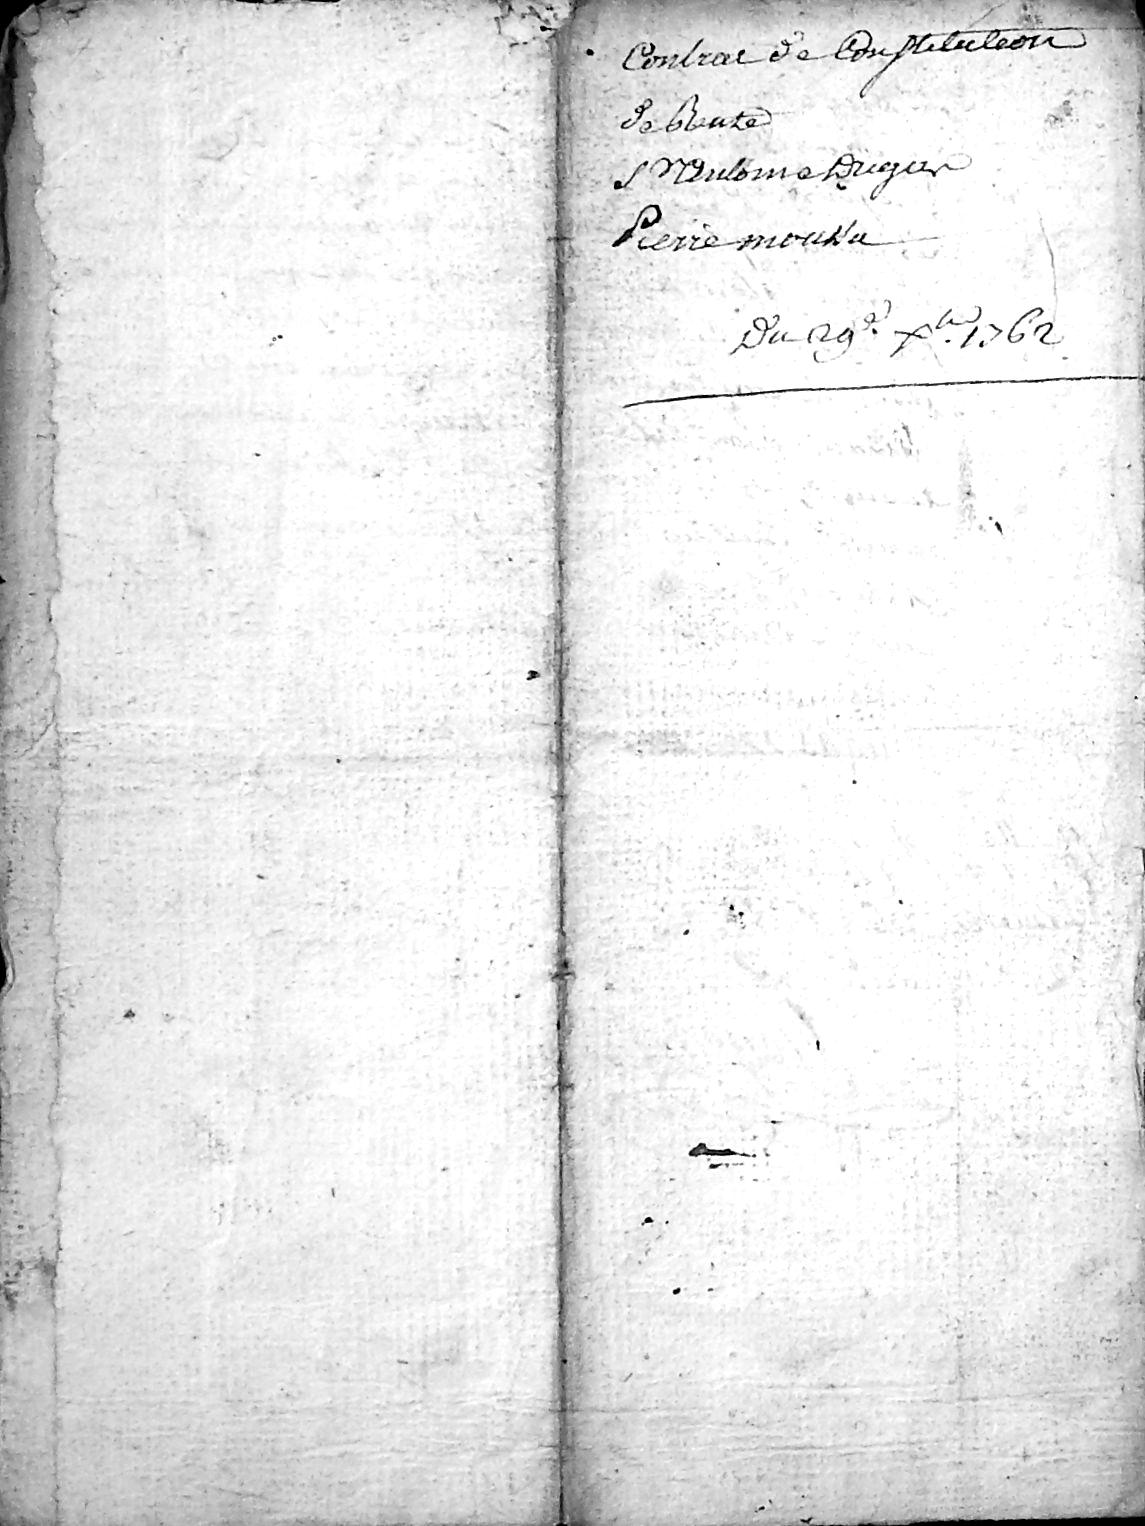 Contrac de Constitution
de Rente
s Antoine Duguer
Pierre mousa
Du 29e. Xbr. 1762